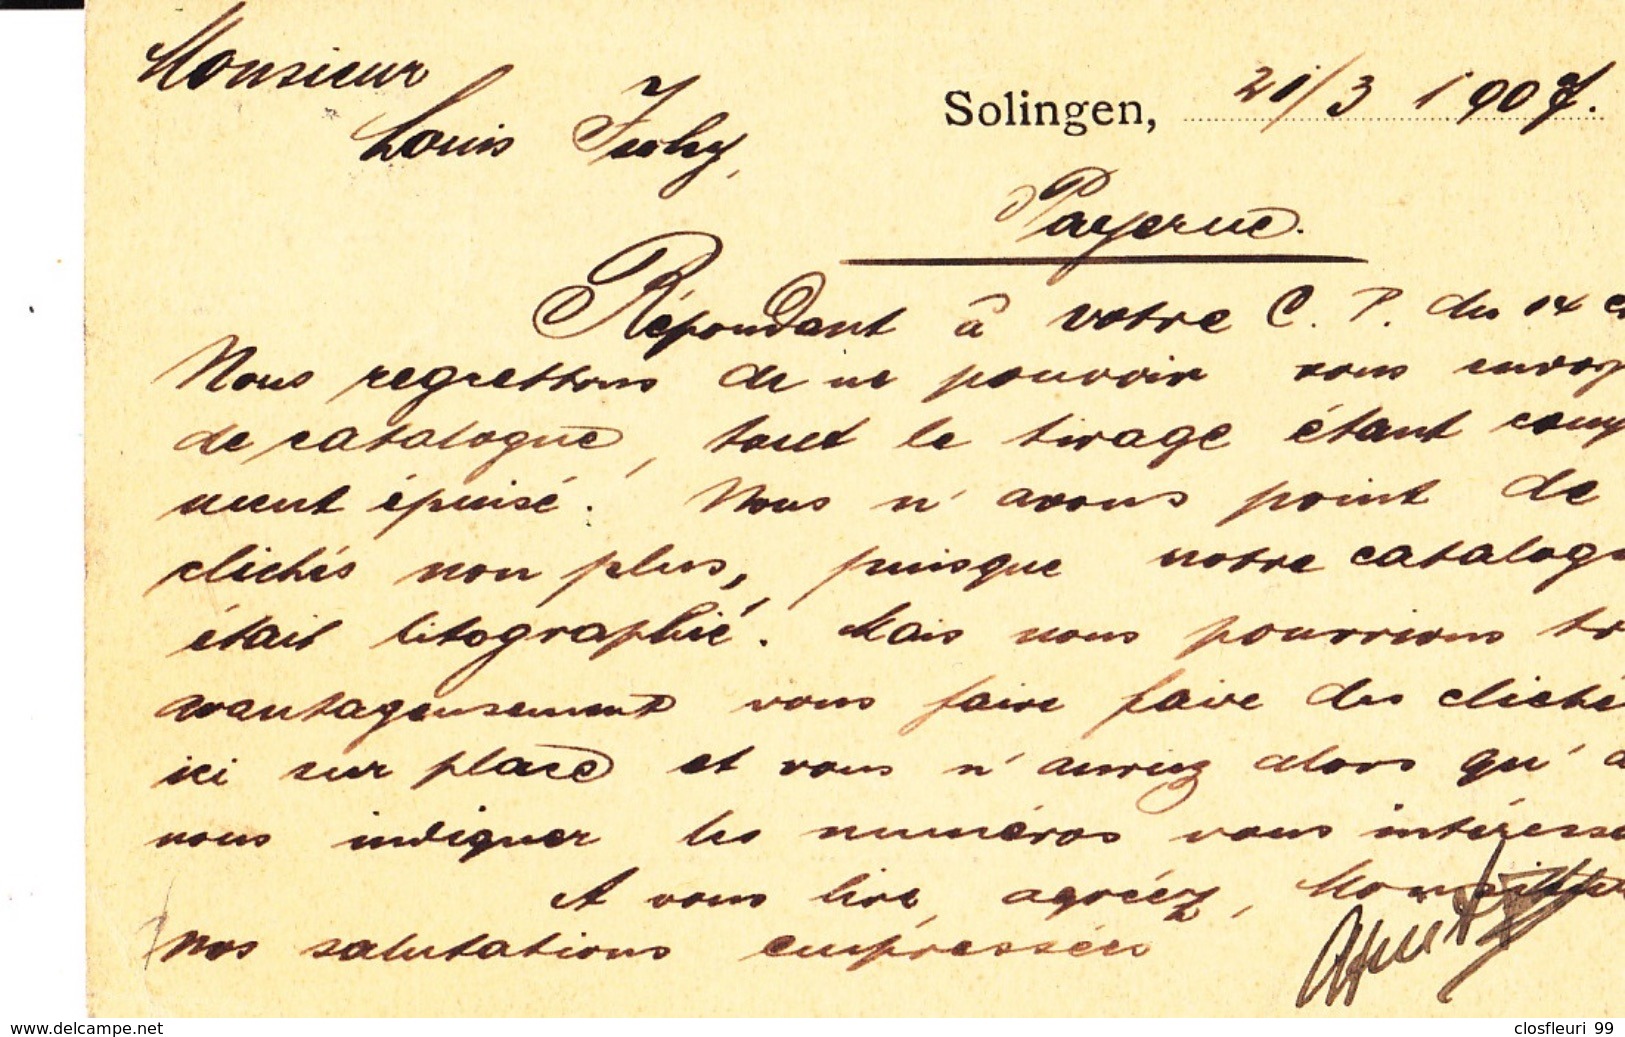 Monsieur
Louis
Solingen, 21/3 1907.
Payerne.
Répondant à votre C. P. du 14
Nous regrettons de ne pouvoir vous envoy
de catalogue, tout le tirage étant comp
ment épuisé. Nous n'avons point de
clichés non plus, puisque notre catalogu
était litographié. Mais nous pourrions tr
avantageusement vous faire faire des cliché
ici sur place et vous n'auriez alors qu'à
nous indiquer les numéros vous intéresse
A vous lire, agréez, Monsieur
Nos salutations empressées
www.delcampe.net
closfleuri 99